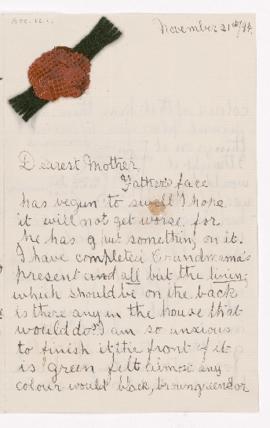 November 21st/94
Dearest Mother
Father's face
has begun to swell I hope
it will not get worse for
he has g put something on it.
I have completed Grandmama's
present and all but the lining
which should be on the back
is there any in the house that
would do? I am so anxious
to finish it, the front of it
is green felt almost any
colour would black, brown, green, or